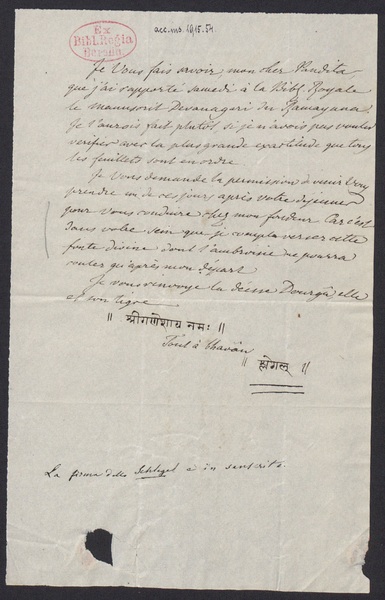 acc. ms. 1915.54
Ex
Bibl. Regia
Berolin.
Je Vous fais savoir, mon cher Pandita
que j'ai rapporté samedi à la Bibl. Royale
le manuscrit Devanagari du Ramayana.
Je l'aurois fait plutôt si je n'avois pas voulu
verifier avec la plus grande exactitude que tous
les feuillets sont en ordre.
Je Vous demande la permission à venir Vous
prendre un de ces jours après votre dejeuner
pour vous conduire chez mon fondeur. Car c'est
dans votre sein que je compte verser cette
fonte divine dont l'ambroisie ne pourra
couler qu'après mon départ
Je vous renvoye la déesse Dourgâ, elle
et son tigre
॥ श्रीगणेशाय नमः ॥
Tout à
॥ ॥
La firma dello Schlegel è in sanskrito.